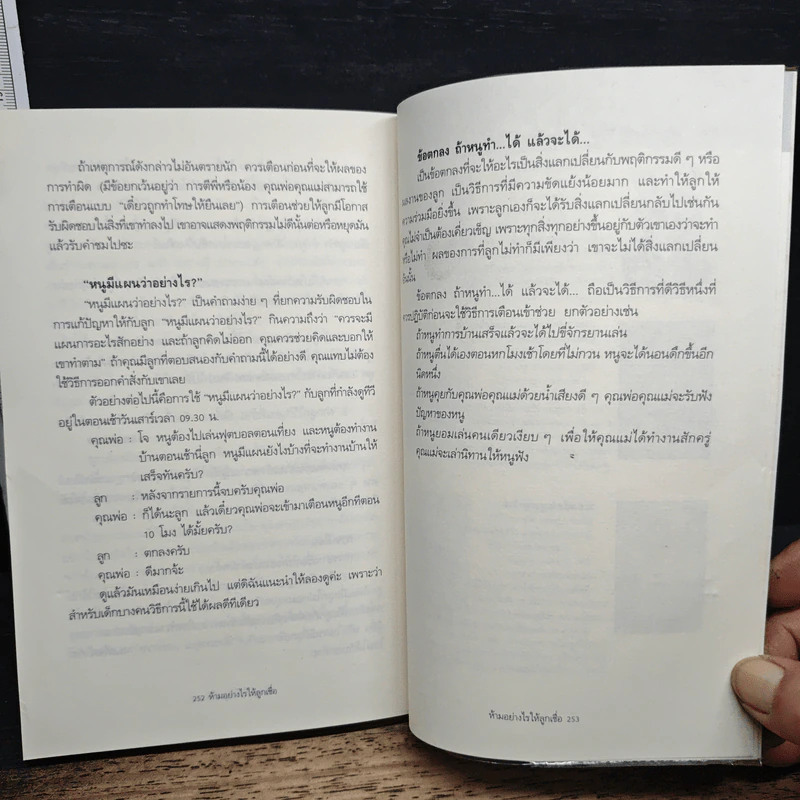 ถ้าเหตุการณ์ดังกล่าวไม่อันตรายนัก ควรเตือนก่อนที่จะให้ผลของ
การทำผิด (มีข้อยกเว้นอยู่ว่า การตีพี่หรือน้อง คุณพ่อคุณแม่สามารถใช้
การเตือนแบบ "เดี๋ยวถูกทำโทษให้ยืนเลย") การเตือนช่วยให้ลูกมีโอกาส
รับผิดชอบในสิ่งที่เขาทำลงไป เขาอาจแสดงพฤติกรรมไม่ดีนั้นต่อหรือหยุดมัน
แล้วรับคำชมไปซะ
"หนูมีแผนว่าอย่างไร?"
"หนูมีแผนว่าอย่างไร?" เป็นคำถามง่าย ๆ ที่ยกความรับผิดชอบใน
การแก้ปัญหาให้กับลูก "หนูมีแผนว่าอย่างไร?" กินความถึงว่า "ควรจะมี
แผนการอะไรสักอย่าง และถ้าลูกคิดไม่ออก คุณควรช่วยคิดและบอกให้
เขาทำตาม" ถ้าคุณมีลูกที่ตอบสนองกับคำถามนี้ได้อย่างดี คุณแทบไม่ต้อง
ใช้วิธีการออกคำสั่งกับเขาเลย
ตัวอย่างต่อไปนี้คือการใช้ "หนูมีแผนว่าอย่างไร?" กับลูกที่กำลังดูทีวี
อยู่ในตอนเช้าวันเสาร์เวลา 09.30 น.
คุณพ่อ : โจ หนูต้องไปเล่นฟุตบอลตอนเที่ยง และหนูต้องทำงาน
บ้านตอนเช้านี่ลูก หนูมีแผนยังไงบ้างที่จะทำงานบ้านให้
เสร็จทันครับ?
ลูก : หลังจากรายการนี้จบครับคุณพ่อ
คุณพ่อ : ก็ได้นะลูก แล้วเดี๋ยวคุณพ่อจะเข้ามาเตือนหนูอีกทีตอน
10 โมง ได้มั้ยครับ?
ลูก : ตกลงครับ
คุณพ่อ : ดีมากจ้ะ
ดูแล้วมันเหมือนง่ายเกินไป แต่ดิฉันแนะนำให้ลองดูค่ะ เพราะว่า
สำหรับเด็กบางคนวิธีการนี้ใช้ได้ผลดีทีเดียว
252 ห้ามอย่างไรให้ลูกเชื่อ
ข้อตกลง ถ้าหนูทำ...ได้ แล้วจะได้...
เป็นข้อตกลงที่จะให้อะไรเป็นสิ่งแลกเปลี่ยนกับพฤติกรรมดี ๆ หรือ
ผลงานของลูก เป็นวิธีการที่มีความขัดแย้งน้อยมาก และทำให้ลูกให้
ความร่วมมือยิ่งขึ้น เพราะลูกเองก็จะได้รับสิ่งแลกเปลี่ยนกลับไปเช่นกัน
คุณไม่จำเป็นต้องเคี่ยวเข็ญ เพราะทุกสิ่งทุกอย่างขึ้นอยู่กับตัวเขาเองว่าจะทำ
หรือไม่ทำ ผลของการที่ลูกไม่ทำก็มีเพียงว่า เขาจะไม่ได้สิ่งแลกเปลี่ยน
อันนั้น
ข้อตกลง ถ้าหนูทำ...ได้ แล้วจะได้... ถือเป็นวิธีการที่ดีวิธีหนึ่งที่
ควรปฏิบัติก่อนจะใช้วิธีการเตือนเข้าช่วย ยกตัวอย่างเช่น
ถ้าหนูทำการบ้านเสร็จแล้วจะได้ไปขี่จักรยานเล่น
ถ้าหนูตื่นได้เองตอนหกโมงเช้าโดยที่ไม่กวน หนูจะได้นอนดึกขึ้นอีก
นิดหนึ่ง
ถ้าหนูคุยกับคุณพ่อคุณแม่ด้วยน้ำเสียงดี ๆ คุณพ่อคุณแม่จะรับฟัง
ปัญหาของหนู
ถ้าหนูยอมเล่นคนเดียวเงียบ ๆ เพื่อให้คุณแม่ได้ทำงานสักครู่
คุณแม่จะเล่านิทานให้หนูฟัง
ห้ามอย่างไรให้ลูกเชื่อ 253